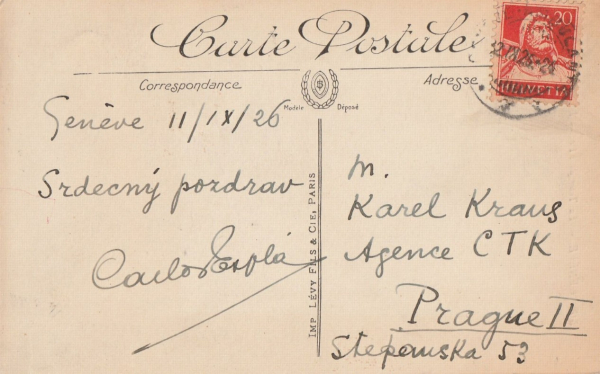 Carte Postale
Correspondance
Adresse
Modèle Déposé
20
HELVETIA
Genève 11/IX/26
Srdecný pozdrav
Carlos Esplá
IMP. LÉVY FILS & CIE, PARIS
M.
Karel Kraus
Agence CTK
Prague II
Stepanska 53